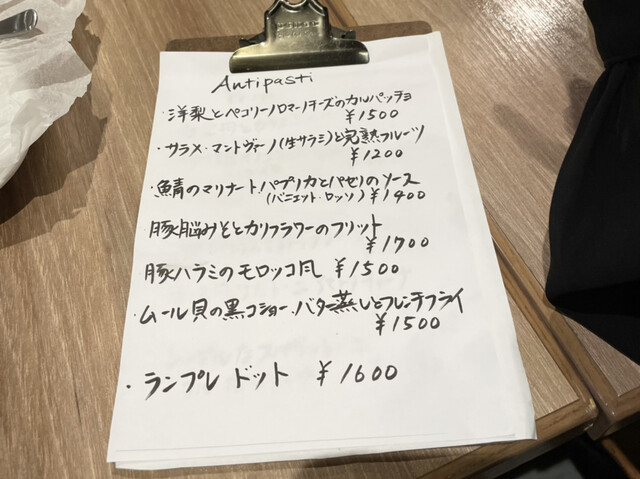 Antipasti
・洋梨とペコリーノロマーノチーズのカルパッチョ
¥1500
・サラメ・マントヴァーノ(生サラミ)と完熟フルーツ
¥1200
・鯖のマリナート.パプリカとパセリのソース
(バニェット・ロッソ) ¥1400
豚脳みそとカリフラワーのフリット
¥1700
豚ハラミのモロッコ風 ¥1500
・ムール貝の黒コショー.バター蒸しとフレンチフライ
¥1500
・ランプレドット ¥1600